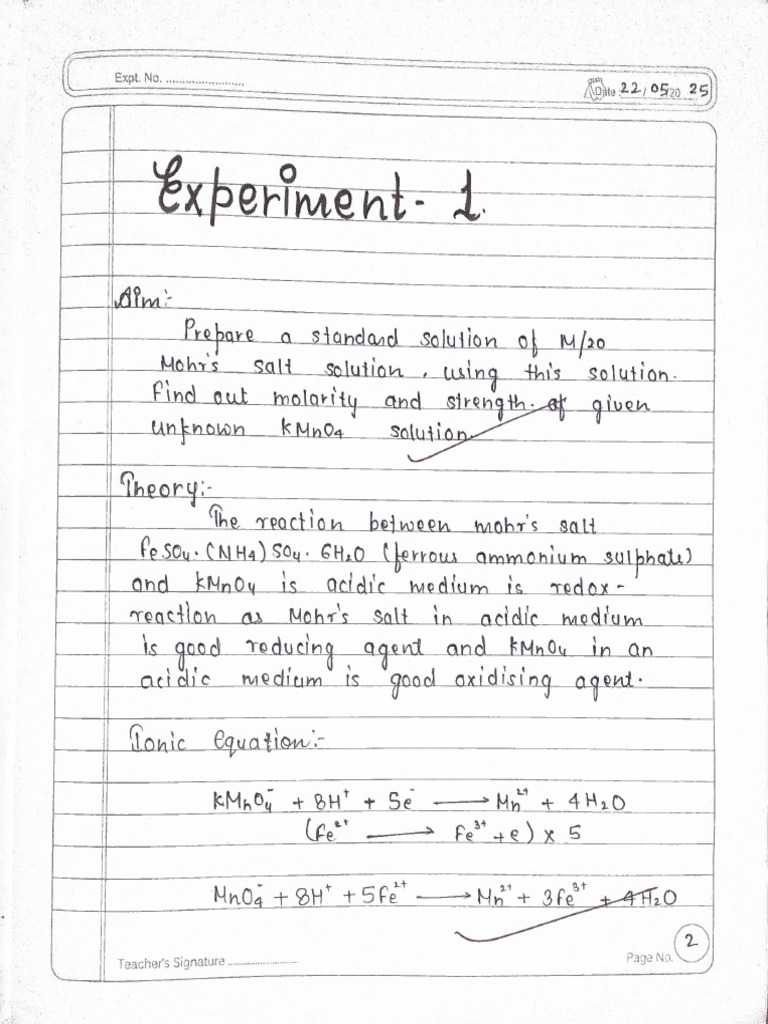 Expt. No.
Date 22/05/20 25
Experiment- 1.
Aim:-
Prepare a standard solution of M/20
Mohr's salt solution. using this solution.
find out molarity and strength. of given
unknown KMnO4 solution.
Theory:-
The reaction between mohr's salt
feSO4.(NH4)SO4.6H2O (ferrous ammonium sulphate)
and KMnO4 is acidic medium is redox-
reaction as Mohr's Salt in acidic medium
is good reducing agent and KMnO4 in an
acidic medium is good oxidising agent.
Ionic equation:-
KMnO4⁻ + 8H⁺ + 5e⁻ ⟶ Mn²⁺ + 4H2O
(fe²⁺ ⟶ fe³⁺ + e) × 5
MnO4⁻ + 8H⁺ + 5fe²⁺ ⟶ Mn²⁺ + 3fe³⁺ + 4H2O
Teacher's Signature
Page No. 2